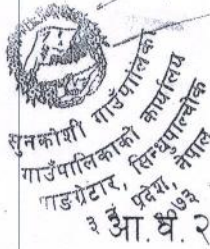 सुनकोशी गाउँपालिका
गाउँपालिकाको कार्यालय
पाङग्रेटार, सिन्धुपाल्चोक
३ नं प्रदेश, नेपाल
२०७३
आ.व.२